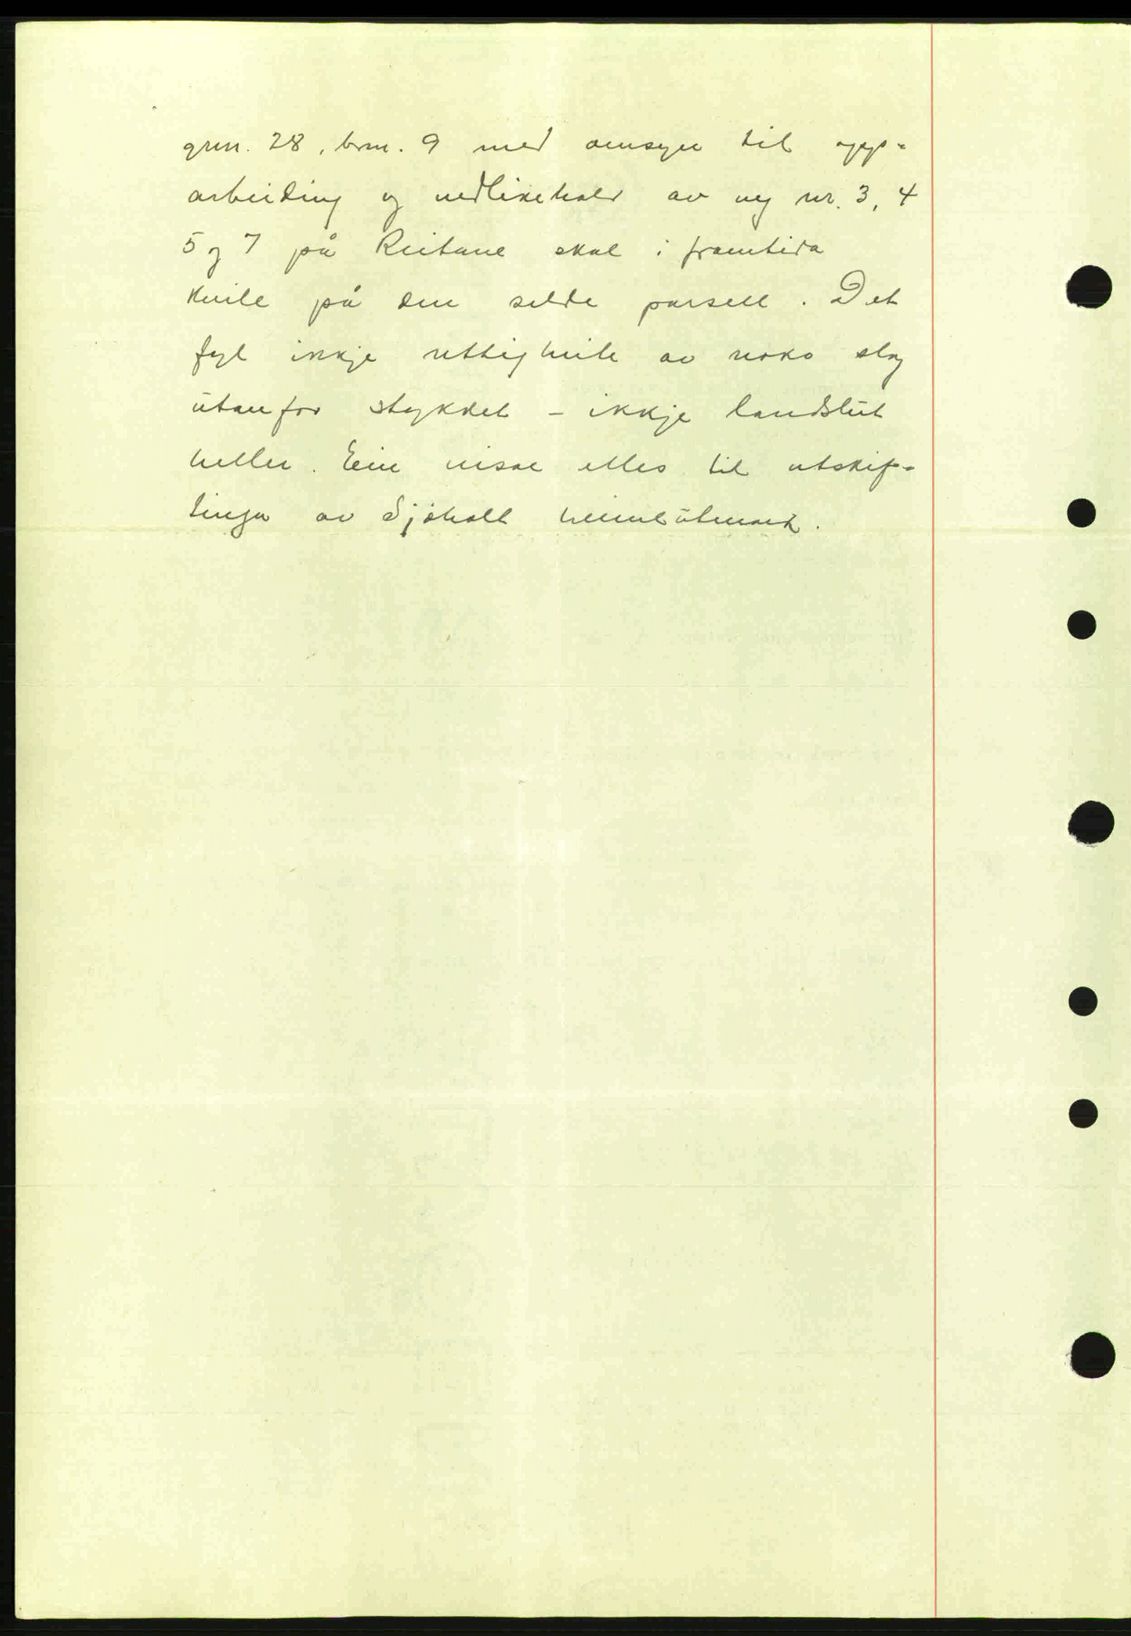 grnr. 28, brnr. 9 med omsyn til opp-
arbeiding og vedlikehald av veg nr. 3, 4
5 og 7 på Reitane skal i framtida
kvile på den selde parsell. Det
fyl ikkje rettigheite av noko slag
utanfor stykket - ikkje landslut
heller. Ein viser elles til utskif-
tinga av Sjøholt heimeutmark.